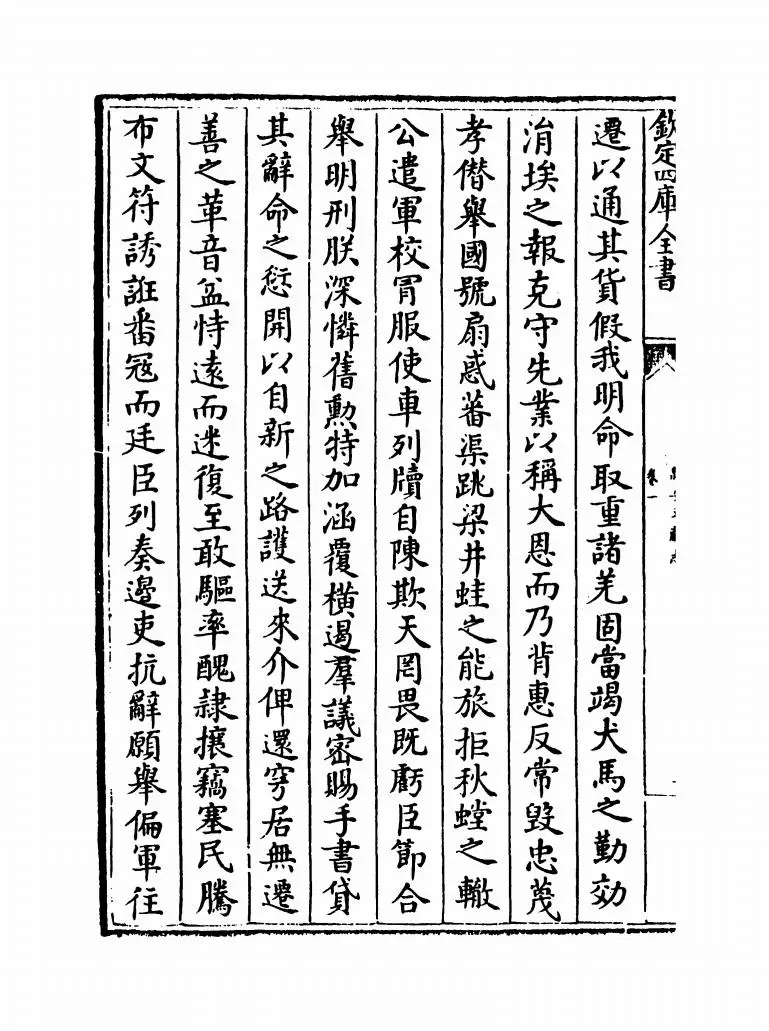 欽定四庫全書
卷一
遷以通其貨假我明命取重諸羌固當竭犬馬之勤効
涓埃之報克守先業以稱大恩而乃背惠反常毀忠蔑
孝僭舉國號扇惑蕃渠跳梁井蛙之能旅拒秋螳之轍
公遣軍校冐服使車列牘自陳欺天罔畏既虧臣節合
舉明刑朕深憐舊勲特加涵覆橫遏羣議密賜手書貸
其辭命之愆開以自新之路護送來介俾還穹居無遷
善之革音益恃遠而迷復至敢驅率醜隷攘竊塞民騰
布文符誘誑番冦而廷臣列奏邊吏抗辭願舉偏軍往